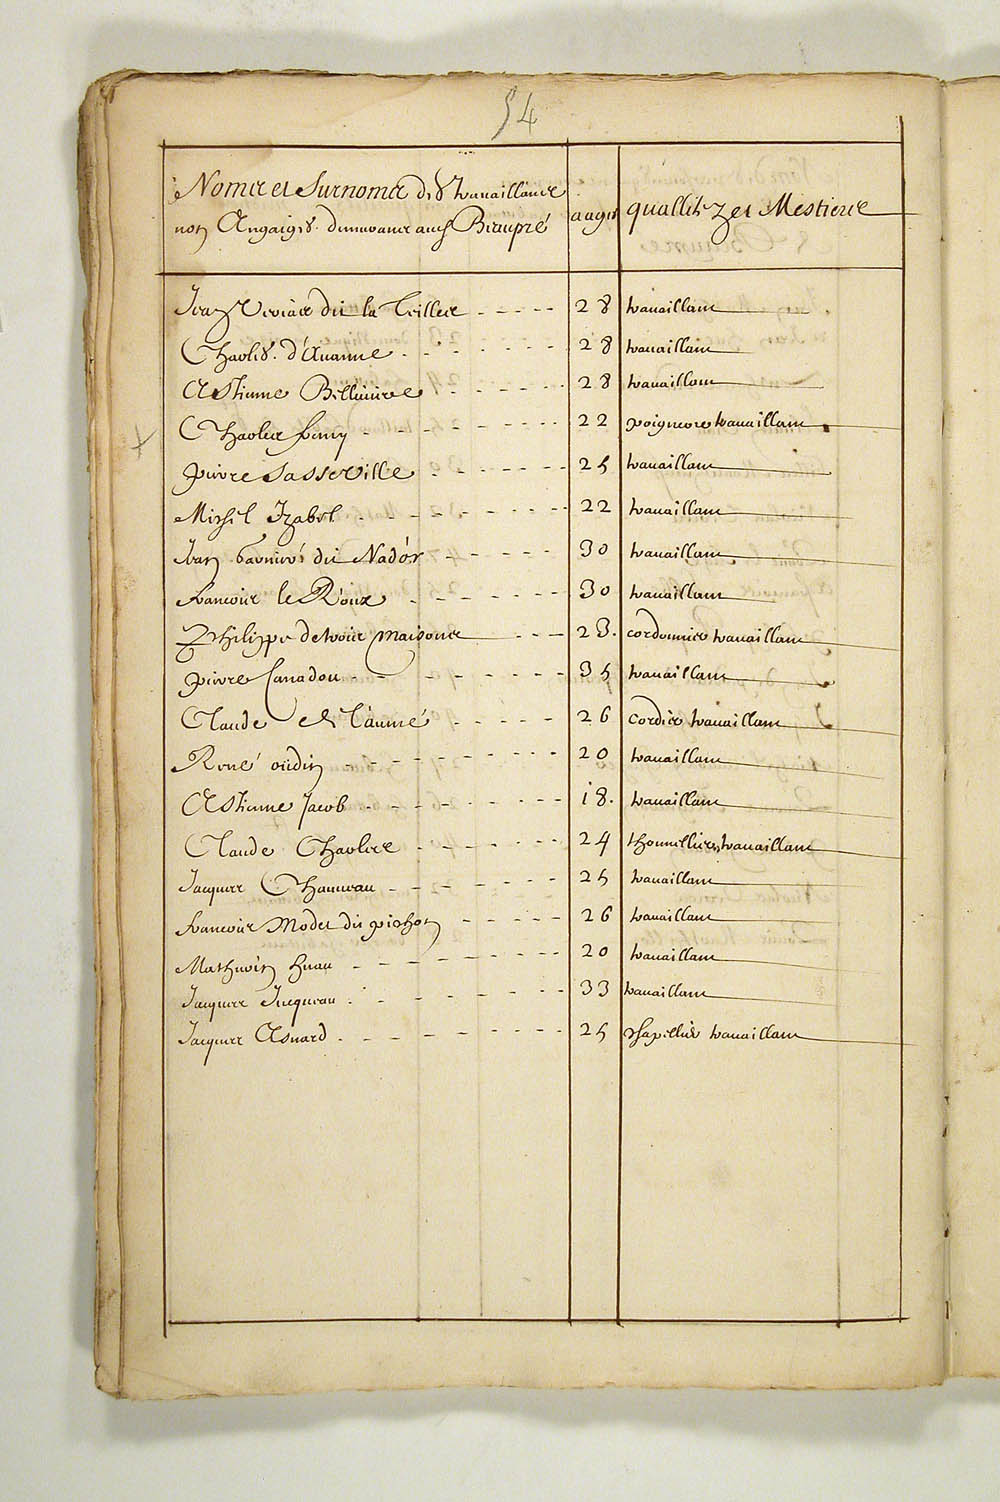 54
Noms et Surnoms des travaillans aagés quallitez et Mestiers
non Angaigés demeurans aud. Beaupré
Jean 28 travaillant
Charles d'Auanne 28 travaillant
Estienne Bellinier 28 travaillant
Charles 22 peigneur travaillant
pierre Sasseville 25 travaillant
Michel Izabel 22 travaillant
Jean Garnier dit Nador 30 travaillant
francois le Roux 30 travaillant
Philippe Destrois maisons 23. cordonnier travaillant
pierre Canadou 35 travaillant
Claude de l'aunné 26 Cordier travaillant
René oüdin 20 travaillant
Estienne Jacob 18. travaillant
Claude Charles 24 thonnellier travaillant
Jacques Chauveau 25 travaillant
francois Modet dit pichon 26 travaillant
Mathurin huau 20 travaillant
Jacques Jucqueau 33 travaillant
Jacques Asnard 25 chapellier travaillant